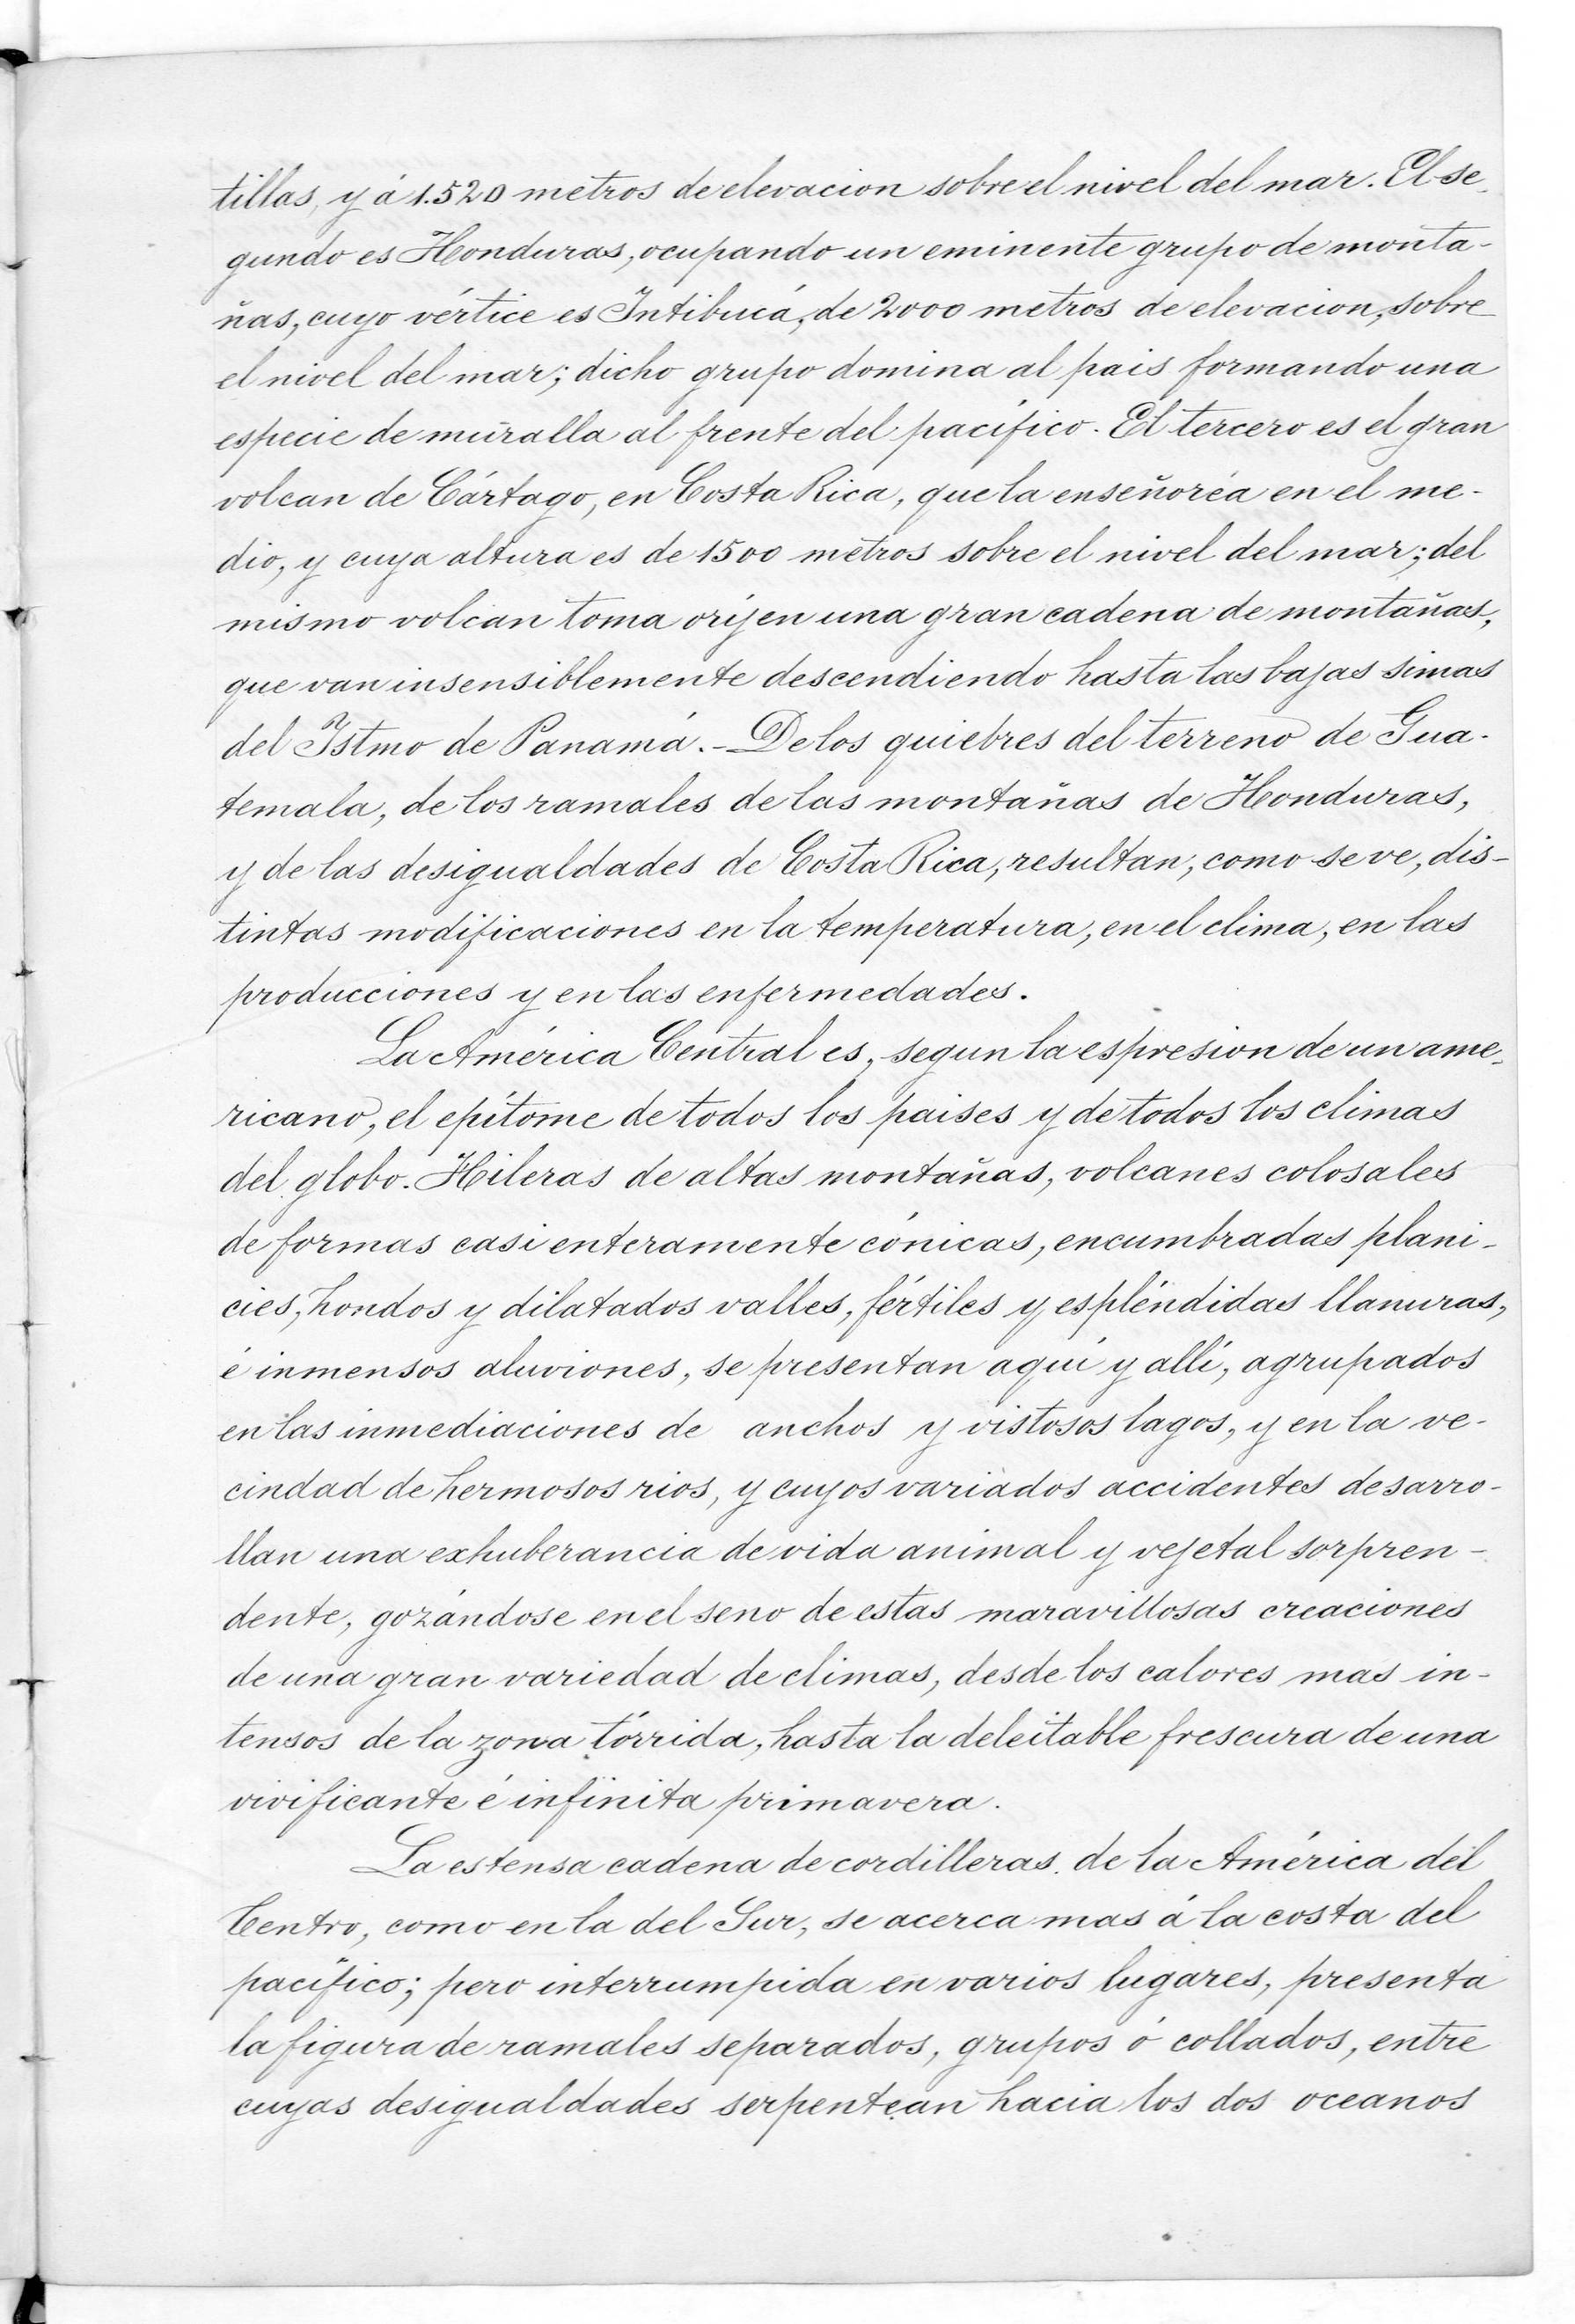 tillas, y á 1.520 metros de elevacion sobre el nivel del mar. El se-
gundo es Honduras, ocupando un eminente grupo de monta-
ñas, cuyo vértice es Intibucá, de 2000 metros de elevacion, sobre
el nivel del mar; dicho grupo domina al pais formando una
especie de muralla al frente del pacífico. El tercero es el gran
volcan de Cártago, en Costa Rica, que la enseñoréa en el me-
dio, y cuya altura es de 1500 metros sobre el nivel del mar; del
mismo volcan toma oríjen una gran cadena de montañas,
que van insensiblemente descendiendo hasta las bajas simas
del Istmo de Panamá.- De los quiebres del terreno de Gua-
temala, de los ramales de las montañas de Honduras,
y de las desigualdades de Costa Rica, resultan, como se ve, dis-
tintas modificaciones en la temperatura, en el clima, en las
producciones y en las enfermedades.
La América Central es, segun la espresion de un ame-
ricano, el epítome de todos los paises y de todos los climas
del globo. Hileras de altas montañas, volcanes colosales
de formas casi enteramente cónicas, encumbradas plani-
cies, hondos y dilatados valles, fértiles y espléndidas llanuras,
é inmensos aluviones, se presentan aquí y allí, agrupados
en las inmediaciones de anchos y vistosos lagos, y en la ve-
cindad de hermosos rios, y cuyos variados accidentes desarro-
llan una exhuberancia de vida animal y vejetal sorpren-
dente, gozándose en el seno de estas maravillosas creaciones
de una gran variedad de climas, desde los calores mas in-
tensos de la zona tórrida, hasta la deleitable frescura de una
vivificante é infinita primavera.
La estensa cadena de cordilleras de la América del
Centro, como en la del Sur, se acerca mas á la costa del
pacífico; pero interrumpida en varios lugares, presenta
la figura de ramales separados, grupos ó collados, entre
cuyas desigualdades serpentean hacia los dos oceanos